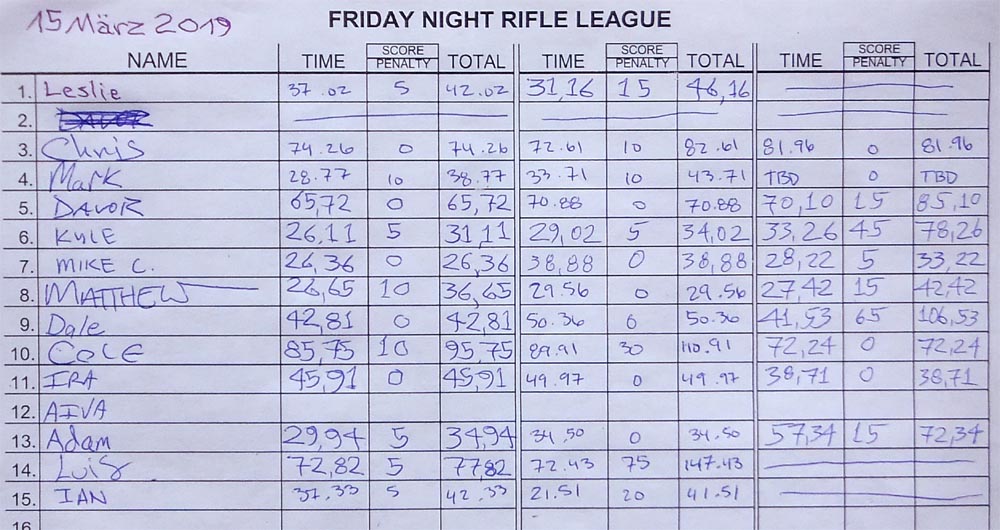 15 März 2019 FRIDAY NIGHT RIFLE LEAGUE
NAME TIME SCORE PENALTY TOTAL TIME SCORE PENALTY TOTAL TIME SCORE PENALTY TOTAL
1. Leslie 37.02 5 42.02 31,16 15 46,16
2.
3. Chris 74.26 0 74.26 72.61 10 82.61 81.96 0 81.96
4. Mark 28.77 10 38.77 33.71 10 43.71 TBD 0 TBD
5. DAVOR 65,72 0 65,72 70.88 0 70.88 70,10 15 85,10
6. KYLE 26,11 5 31,11 29,02 5 34,02 33,26 45 78,26
7. MIKE C. 26,36 0 26,36 38,88 0 38,88 28,22 5 33,22
8. MATTHEW 26,65 10 36,65 29.56 0 29.56 27,42 15 42,42
9. Dale 42,81 0 42,81 50.36 0 50.36 41,53 65 106,53
10. COLE 85,75 10 95,75 89.91 30 110.91 72,24 0 72,24
11. IRA 45,91 0 45,91 49.97 0 49.97 38,71 0 38,71
12. AIVA
13. Adam 29,94 5 34,94 34.50 0 34.50 57,34 15 72,34
14. Luis 72,82 5 77,82 72.43 75 147.43
15. IAN 37.33 5 42.33 21.51 20 41.51
16.